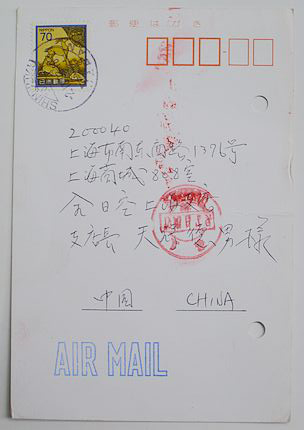 郵便はがき
NIPPON
70
日本郵便
200040
上海市南京西路1376号
上海商城 室
全日空上海支店
支店長 天 男様
中国 CHINA
AIR MAIL